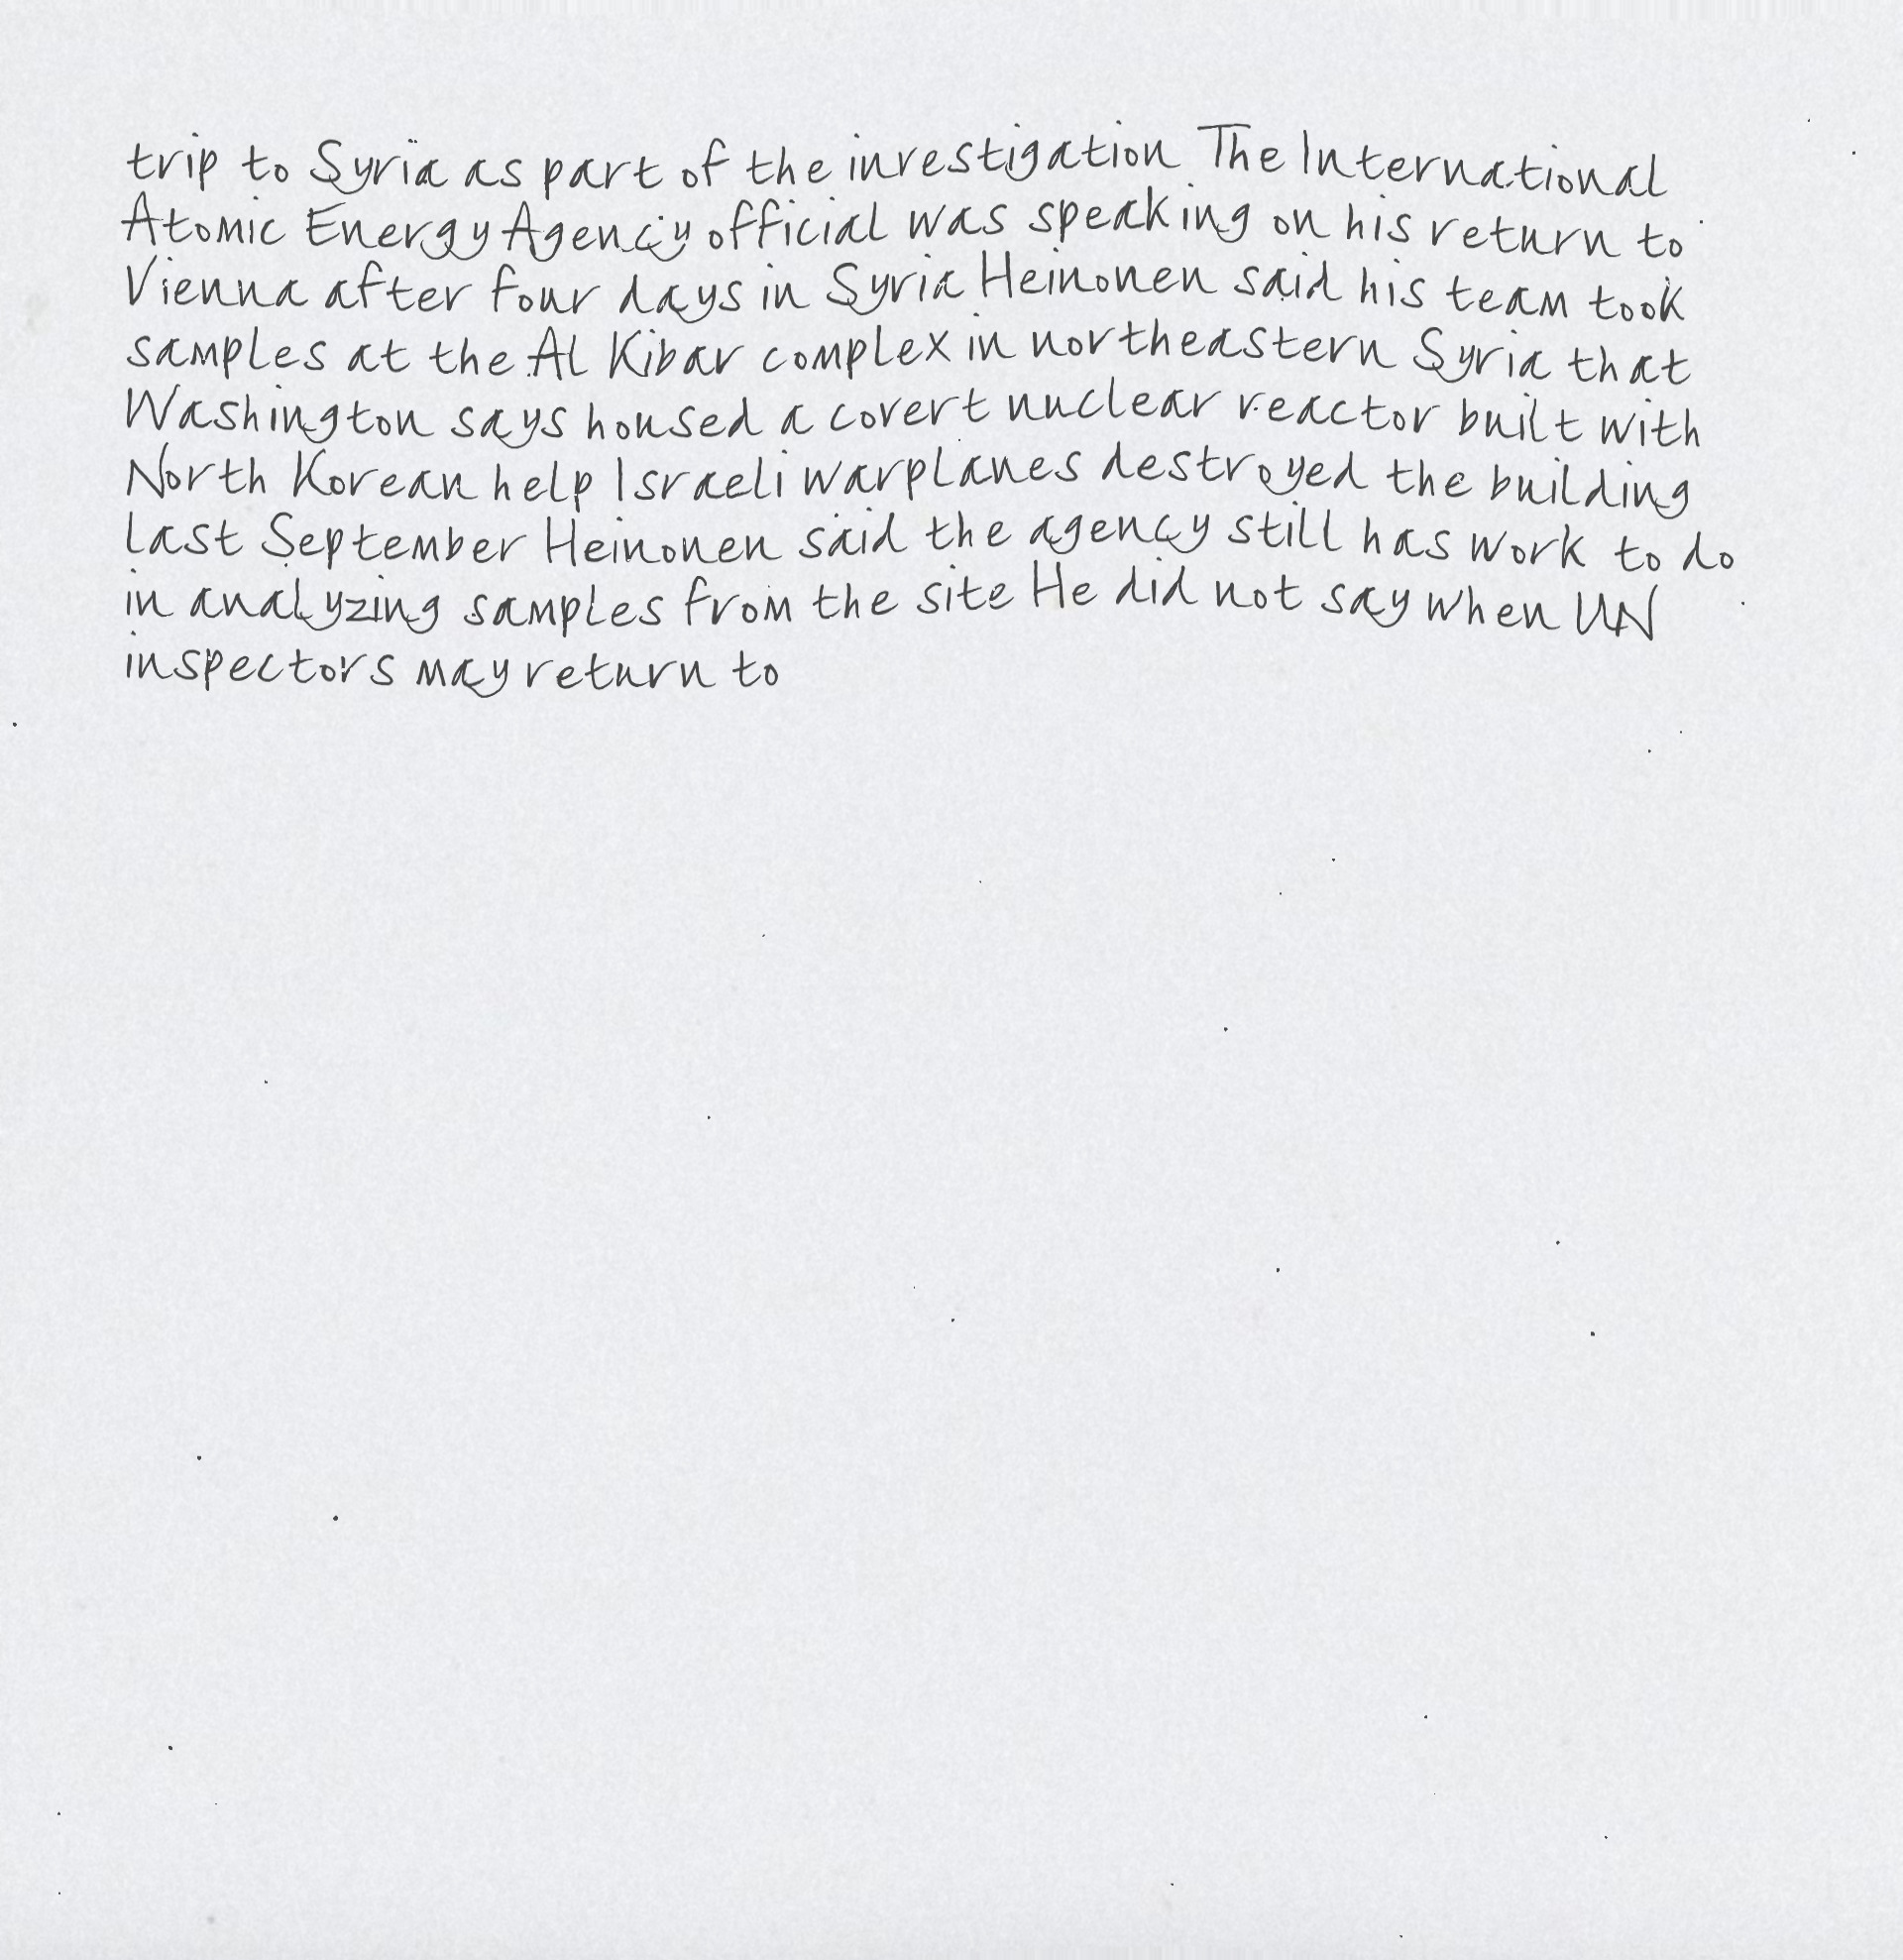 trip to Syria as part of the investigation The International
Atomic Energy Agency official was speaking on his return to
Vienna after four days in Syria Heinonen said his team took
samples at the Al Kibar complex in northeastern Syria that
Washington says housed a covert nuclear reactor built with
North Korean help Israeli warplanes destroyed the building
last September Heinonen said the agency still has work to do
in analyzing samples from the site He did not say when UN
inspectors may return to